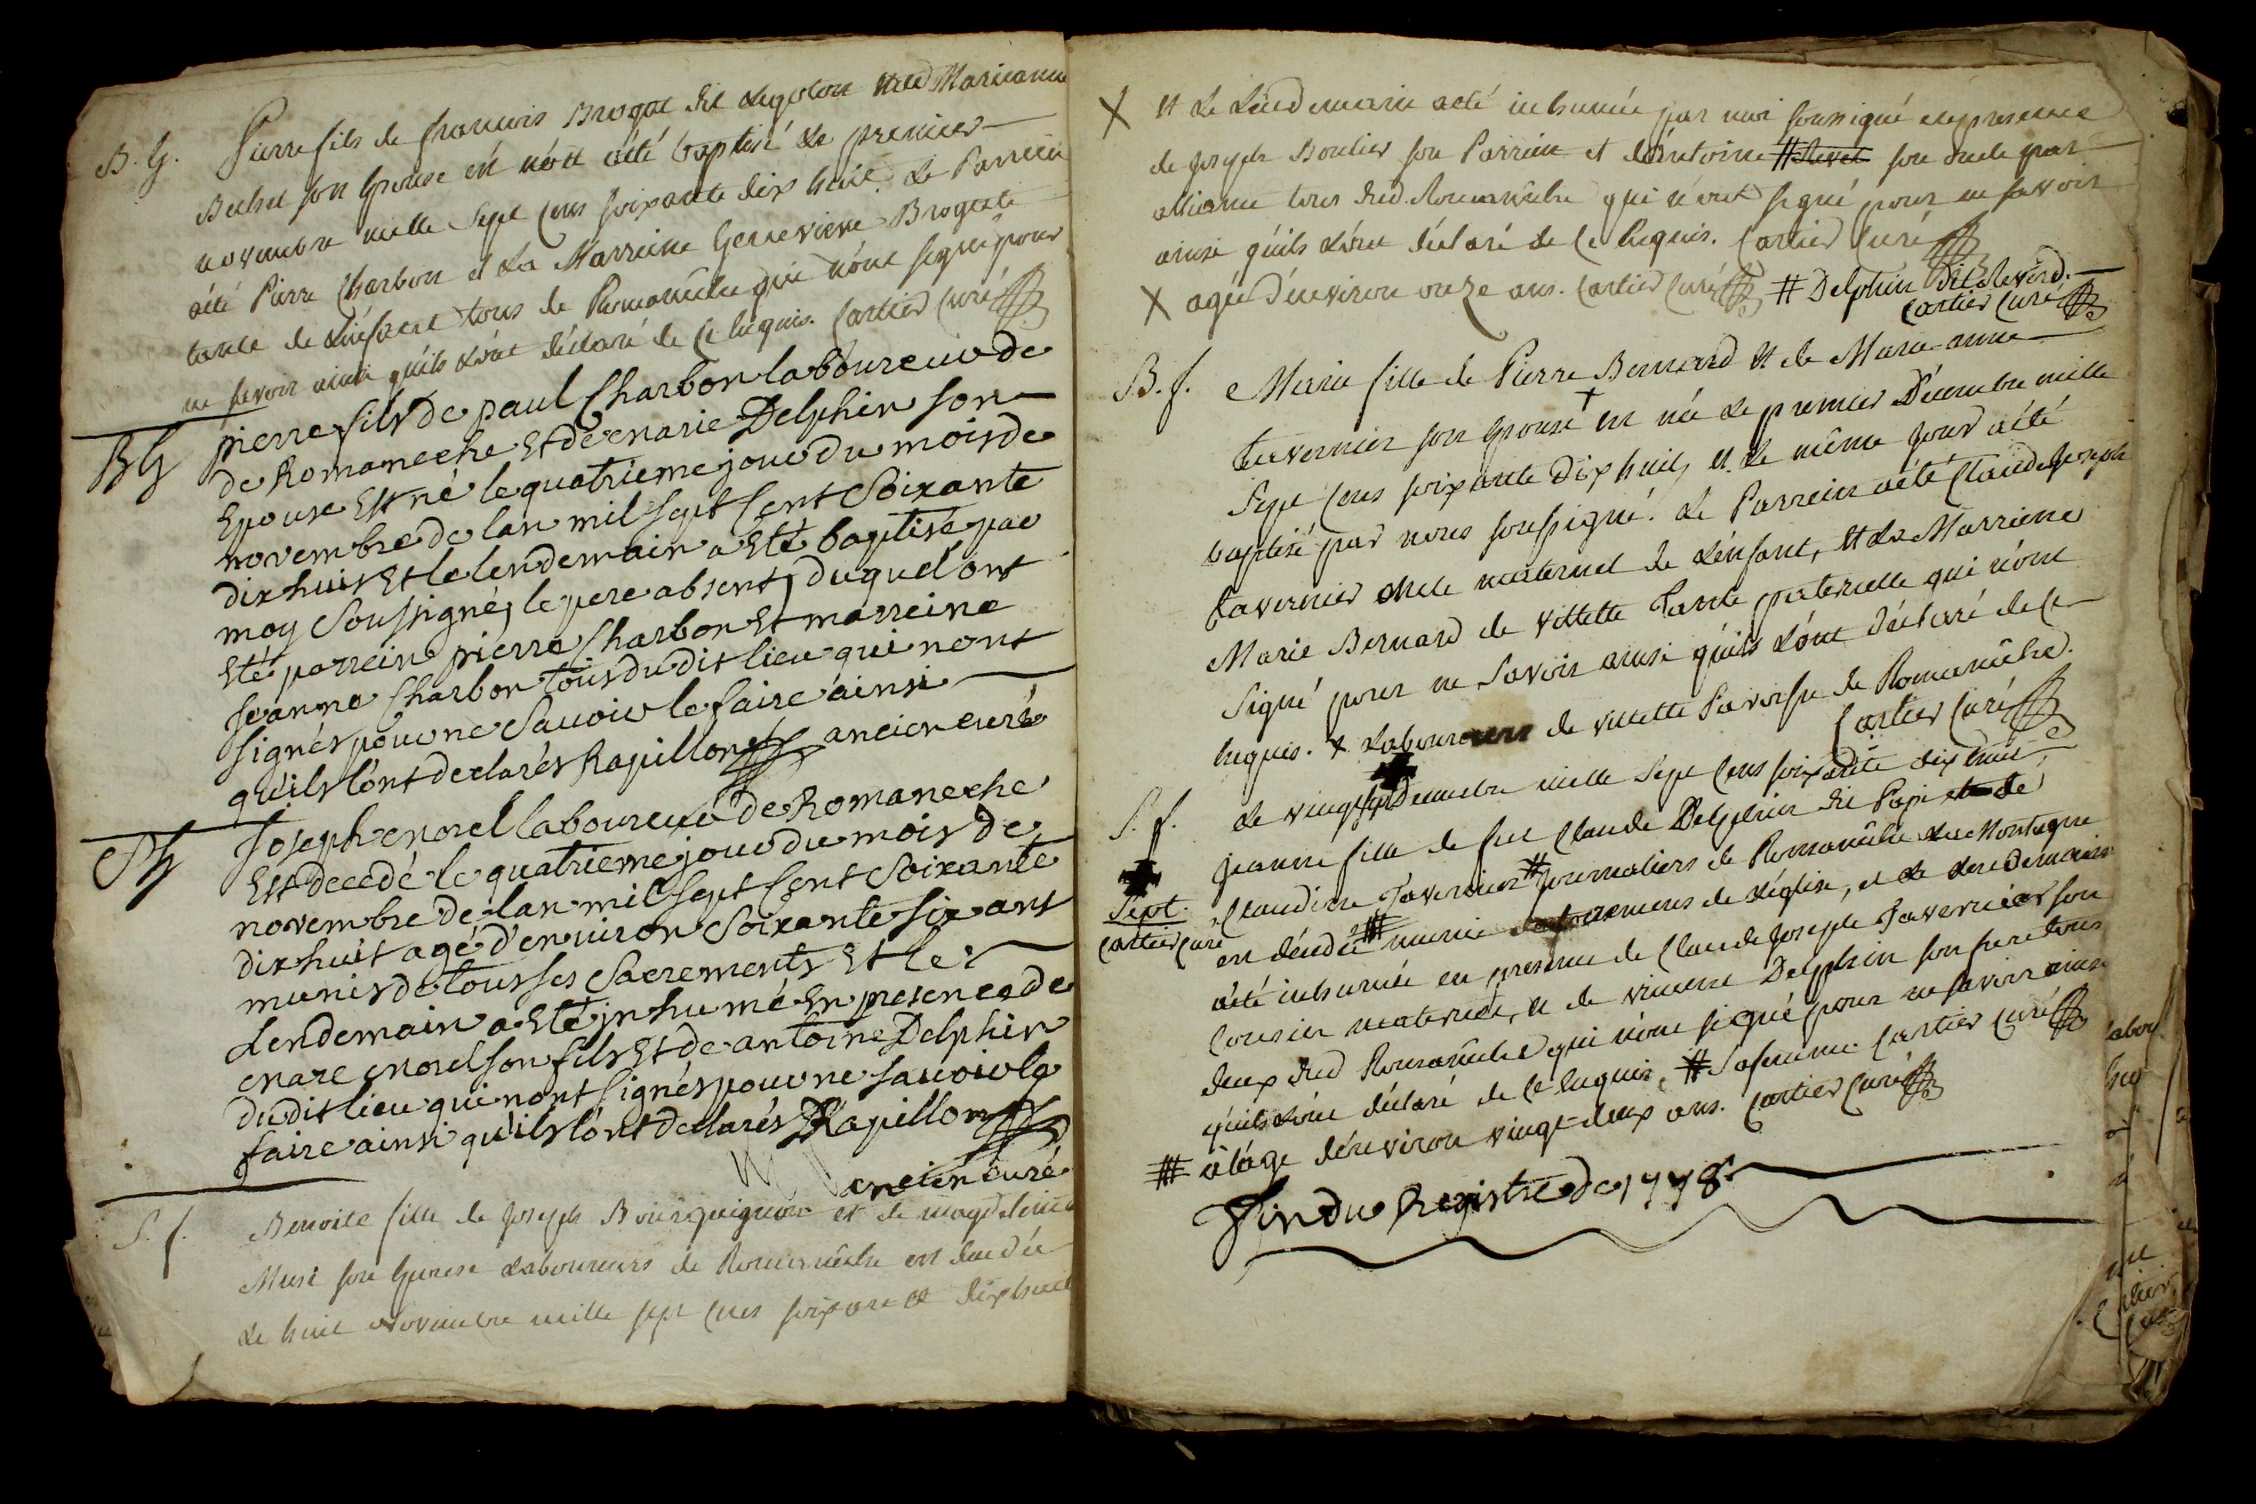 B. G. Pierre fils de francois Brogat dit Legolon et de Marieanne
Bechet son Epouse est né et a été baptisé le premier
novembre mille Sept Cens soixante dix huit. Le Parrein
a été Pierre Charbon et La Marreine Genevieve Brogat
tante de L'enfant tous de Romanêche qui n'ont signé pour
ne savoir ainsi qu'ils L'ont déclaré de Ce Enquis. Cartier Curé
BG pierre fils De paul Charbon laboureur de
de Romaneche Et de marie Delphin son
Epouse Est né le quatrieme jour du mois de
novembre de lan mil sept Cent Soixante
dix huit Et le lendemain a Eté baptisé par
moy Soussigné, le pere absent, duquel ont
Eté parrein pierre Charbon Et marreine
Jeanne Charbon tous du dit lieu qui nont
signés pour ne Sauoir le faire ainsi
qu'ils lónt declarés Rapillon ancien curé
SG Joseph morel laboureur de Romaneche
Est decedé le quatrieme jour du mois de
novembre de lan mil sept Cent Soixante
dix huit agé d'enuiron Soixante six ans
munis de tous ses Sacrements Et le
Lendemain a Eté jnhumé En presence de
marc morel son fils Et de antoine Delphin
du dit lieu qui nont Signés pour ne sauoir le
faire ainsi qu'ils lónt declarés Rapillon
ancien curé
S. f. Benoite fille de Joseph Bourguignon et de magdeleine
Musi son Epouse Laboureurs de Romanêche est decedée
Le huit Novembre mille sept Cens soixante dix huit
X et Le Lendemain a été inhumée par moi soussigné en presence
de Joseph Boulier son Parrein et d'Antoine # Revet son oncle par
alliance tous dud. Romanêche qui n'ont signé pour ne savoir
ainsi qu'ils L'ont déclaré de Ce Enquis. Cartier Curé
X agée d'environ onze ans. Cartier Curé # Delphin dit Reverd.
Cartier Curé
B. f. Marie fille de Pierre Bernard et de Marie-anne
Tavernier son Epouse † est née Le premier Décembre mille
Sept Cens soixante Dix huit, et Le même jour a été
baptisé par nous soussigné. Le Parrein a été Claude Joseph
Tavernier oncle maternel de L'enfant, et La Marreine
Marie Bernard de Villette Tante paternelle qui n'ont
Signé pour ne Savoir ainsi qu'ils L'ont déclaré de Ce
Enquis. † Laboureurs de Villette Paroisse de Romanêche.
Cartier Curé
S. f. Le vingt Decembre mille Sept Cens soixante dix huit
Jeanne fille de feu Claude Delphin dit Papi et de
Sept. Claudine Tavernier # journaliers de Romanêche La Montagne
Cartier Curé est décedée # munie des sacremens de L'église, et Le Lendemain
a été inhumée en presence de Claude Joseph Tavernier son
Cousin maternel, et de vincent Delphin son frere tous
deux dud Romanêche qui n'ont signé pour ne savoir ainsi
qu'ils L'ont déclaré de Ce Enquis, # Sa femme. Cartier Curé
# à l'âge d'environ vingt-deux ans. Cartier Curé
Fin du Registre de 1778.